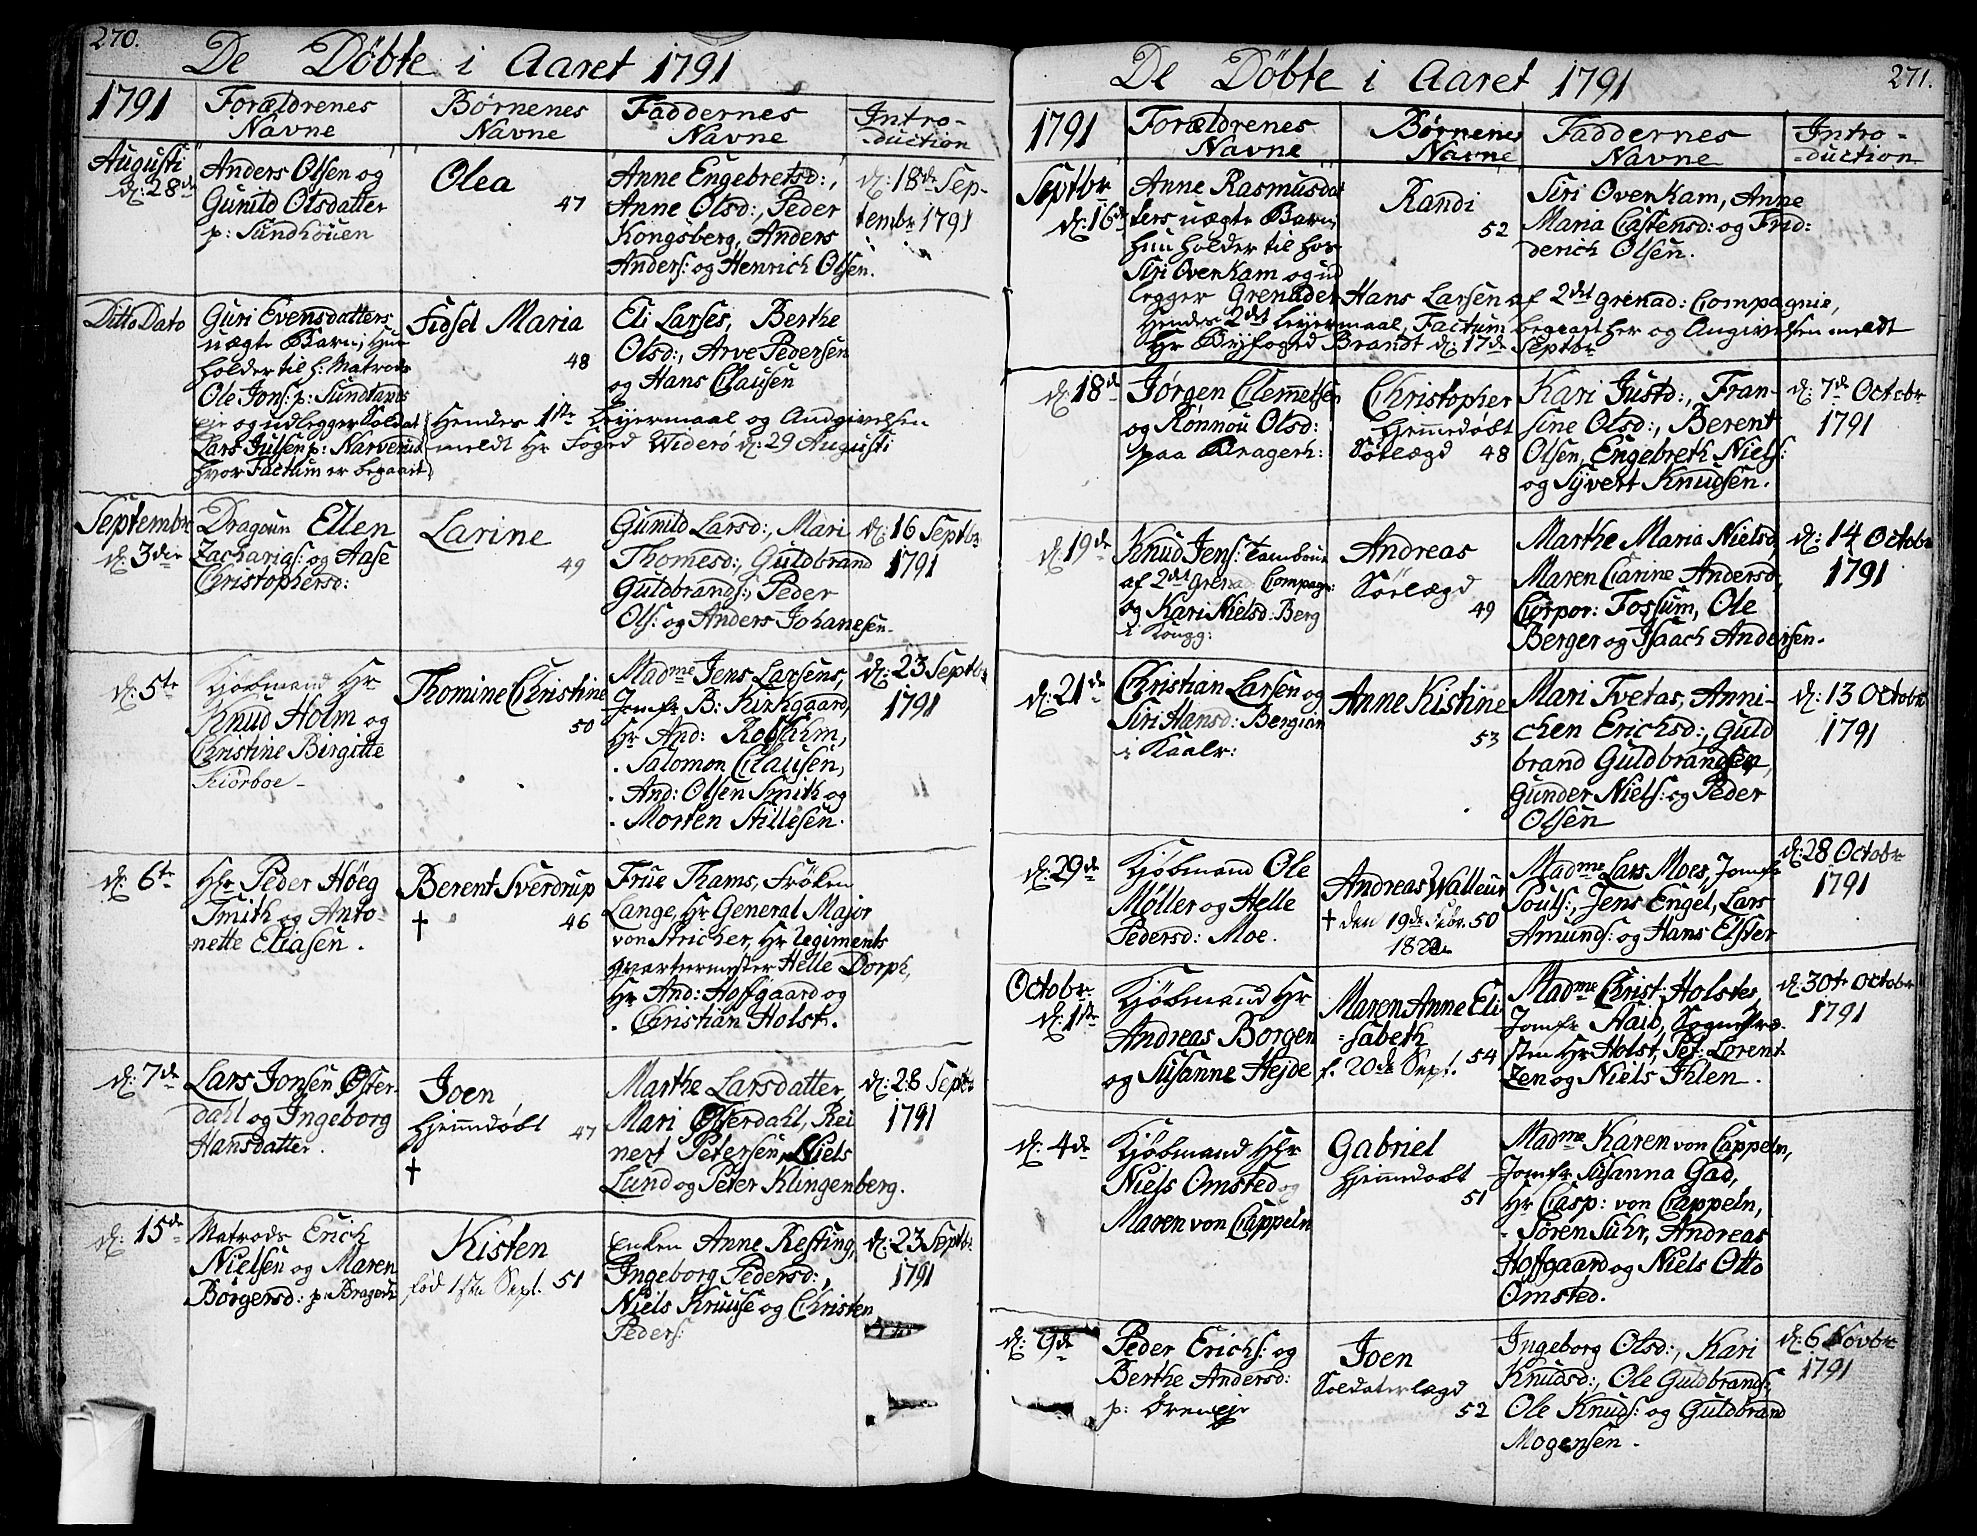 270.
De Döbte i Aaret 1791
1791
Forældrenes
Navne
Börnenes
Navne
Faddernes
Navne
Intro-
duction
Augusti
d: 28de
Anders Olsen og
Gunild Olsdatter
p: Sundhouen
Olea
47
Anne Engebretsd:,
Anne Olsd:, Peder
Kongsberg, Anders
Anders: og Henrich Olsen.
d: 18de Sep-
tembr 1791
Ditto Dato
Guri Evensdatters
uægte Barn, Hun
holder til h: Matrods
Ole Jons: p: Sundlands
eje og udlegger Soldat
Lars Julsen p: Narverud
hvor Factum er begaaet
Fidsel Maria
48
Eli Larses, Berthe
Olsd:, Arve Pedersen
og Hans Clausen
Hendes 1ste Leyermaal og Andgivelsen
meldt Hr Foged Widerö d: 29 Augusti
Septembr
d: 3die
Dragoun Ellen
Zacharias: og Aase
Christophersd:
Larine
49
Gunild Larsd:, Mari
Thomesd:, Guldbrand
Guldbrands:, Peder
Ols: og Anders Johanesen.
d: 16 Septbr
1791
d: 5te
Kjöbmand Hr
Knud Holm og
Christine Birgitte
Kiörboe -
Thomine Christine
50
Madme Jens Larsens,
Jomfr B: Kirkgaard,
Hr And: Robsahm,
Salomon Clausen,
And: Olsen Smith og
Morten Stillesen.
d: 23 Septbr
1791
d: 6te
Hr Peder Höeg
Smith og Anto-
nette Eliasen.
Berent Sverdrup
† 46
Frue Thams, Fröken
Lange, Hr General Major
von Stricher, Hr Regiments
qvarteermester Helle Dorph,
Hr And: Hoffgaard og
Christian Holst.
d: 7de
Lars Jonsen Öster-
dahl og Ingeborg
Hansdatter.
Joen
Hjemmdöbt 47
†
Marthe Larsdatter,
Mari Österdahl, Rei
nert Petersen, Niels
Lund og Peter Klingenberg.
d: 28 Septr
1791
d: 15de
Matrods Erich
Nielsen og Maren
Borgersd: p: Bragerh
Kisten
föd 1ste Sept. 51
Enken Anne Resting,
Ingeborg Pedersd:,
Niels Knuuse og Christen
Peders:
d: 23 Septbr
1791
271.
De Döbte i Aaret 1791
1791
Forældrenes
Navne
Börnenes
Navne
Faddernes
Navne
Intro-
-duction
Septbr
d: 16de
Anne Rasmusdat
ters uægte Barn,
hun holder til hos
Siri Ovenkam og ud
legger Grenader Hans Larsen af 2det Grenad: Compagnie,
Hendes 2det Leyermaal, Factum begaaet her og Angivelsen meldt
Hr Byfoged Brandt d: 17de Septbr
Randi
52
Siri Ovenkam, Anne
Maria Castensd: og Frid-
derich Olsen.
d: 18de
Jörgen Clemetsen
og Rönnou Olsd:
paa Bragerh:
Christopher
Hjemmedöbt
Söelægd 48
Kari Justd:, Fran-
sine Olsd:, Berent
Olsen, Engebreth Niels:
og Syvert Knudsen.
d: 7de Octobr
1791
d: 19de
Knud Jens: Tambour
af 2det Grenad: Compagn:
og Kari Nielsd: Berg
i Kongg:
Andreas
Söelægd
49
Marthe Maria Nielsd
Maren Carine Andersd,
Corpor: Fossum, Ole
Berger og Isaach Andersen.
d: 14 Octobr
1791
d: 21de
Christian Larsen og
Siri Hansd: Bergian
Anne Kistine
53
Mari Tvetas, Anni-
chen Erichsd:, Guld
brand Guldbrandsen,
Gunder Niels: og Peder
Olsen
d: 13 Octobr
1791
d: 29de
Kjöbmand Ole
Möller og Helle
Pedersd: Moe.
Andreas Walleur
† den 19de 50
Madme Lars Moes, Jomfr
Pouls:, Jens Engel, Lars
Amunds: og Hans Elster
d: 28 Octobr
1791
Octobr
d: 1ste
Kjöbmand Hr
Andreas Borgen
og Susanne Hejde
Maren Anne Eli
-sabeth
f. 20de Sept. 54
Madme Christ: Holstes,
Jomfr Aaid, Sognepræ-
sten Hr Holst, Pet: Lorent
zen og Niels Ihlen.
d: 30te Octobr
1791
d: 4de
Kjöbmand Hr
Niels Omsted og
Maren von Cappeln
Gabriel
Hjemmdöbt
51
Madme Karen von Cappeln,
Jomfr Susanna Gad,
Hr Casp: von Cappeln,
Sören Suhr, Andreas
Hoffgaard og Niels Otto
Omsted.
d: 9de
Peder Erichs: og
Berthe Andersd:
p: Öreneje
Joen
Soldaterlægd
52
Ingeborg Olsd:, Kari
Knudsd:, Ole Guldbrands:
Ole Knuds: og Guldbrand
Mogensen.
d: 6 Novbr
1791